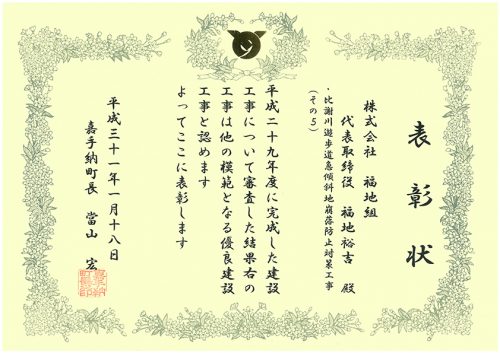 表彰状
株式会社 福地組
代表取締役 福地裕吉 殿
・比謝川遊歩道急傾斜地崩落防止対策工事
（その5）
平成二十九年度に完成した建設
工事について審査した結果右の
工事は他の模範となる優良建設
工事と認めます
よってここに表彰します
平成三十一年一月十八日
嘉手納町長 當山 宏
嘉手納
町長印